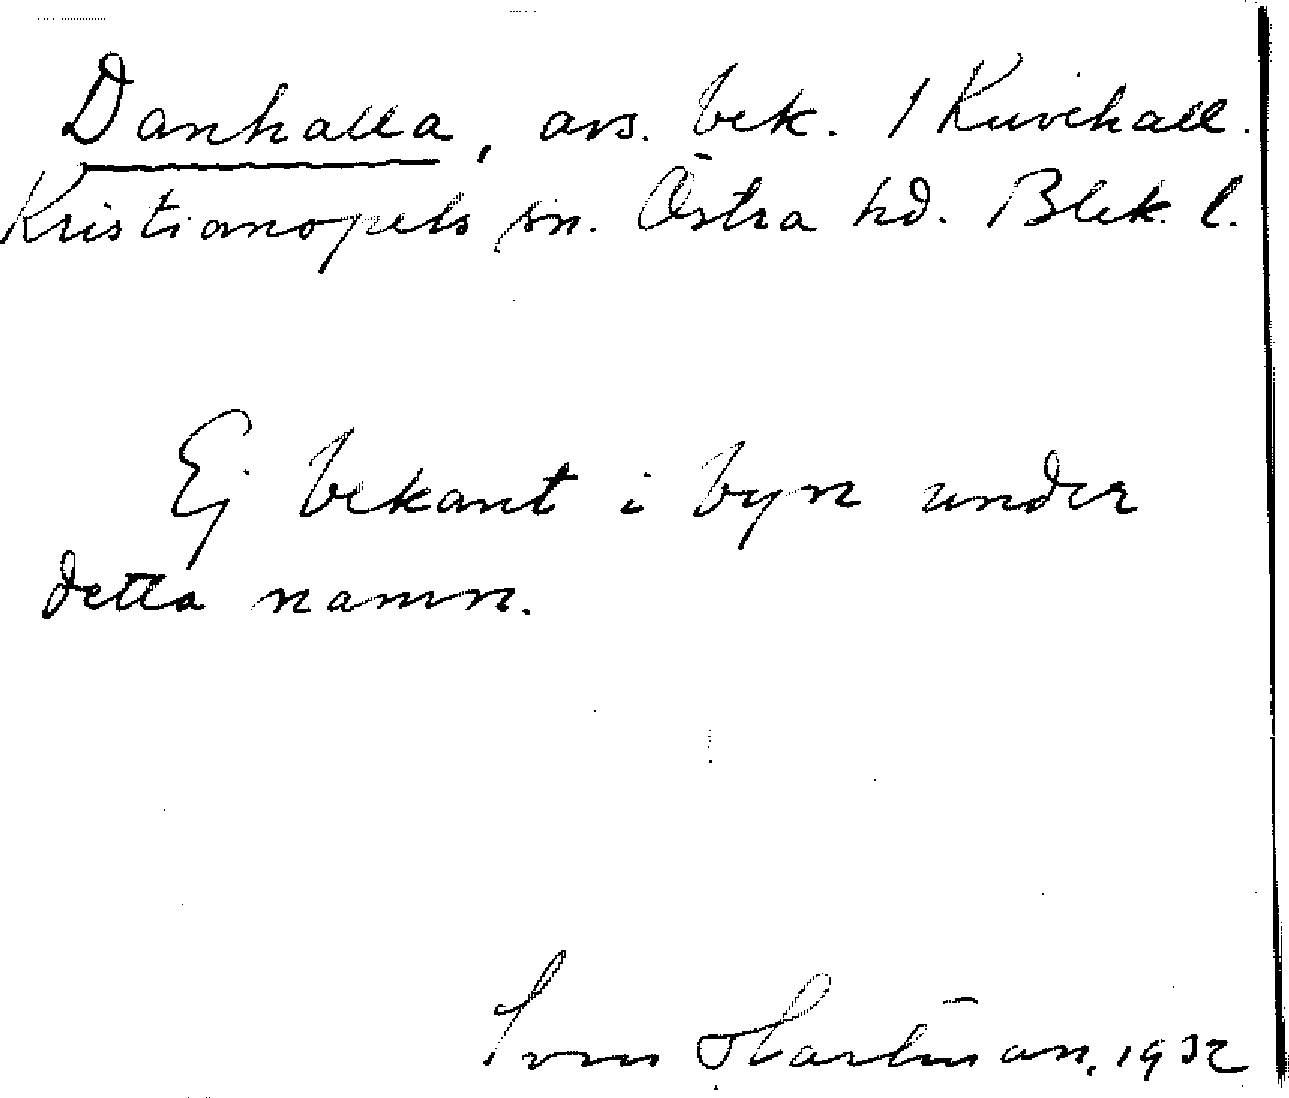 Danhalla, avs. bek. 1 Kuvehall.
Kristianopels sn. Östra hd. Blek. l.
Ej bekant i byn under
detta namn.
Sven Hartman, 1932